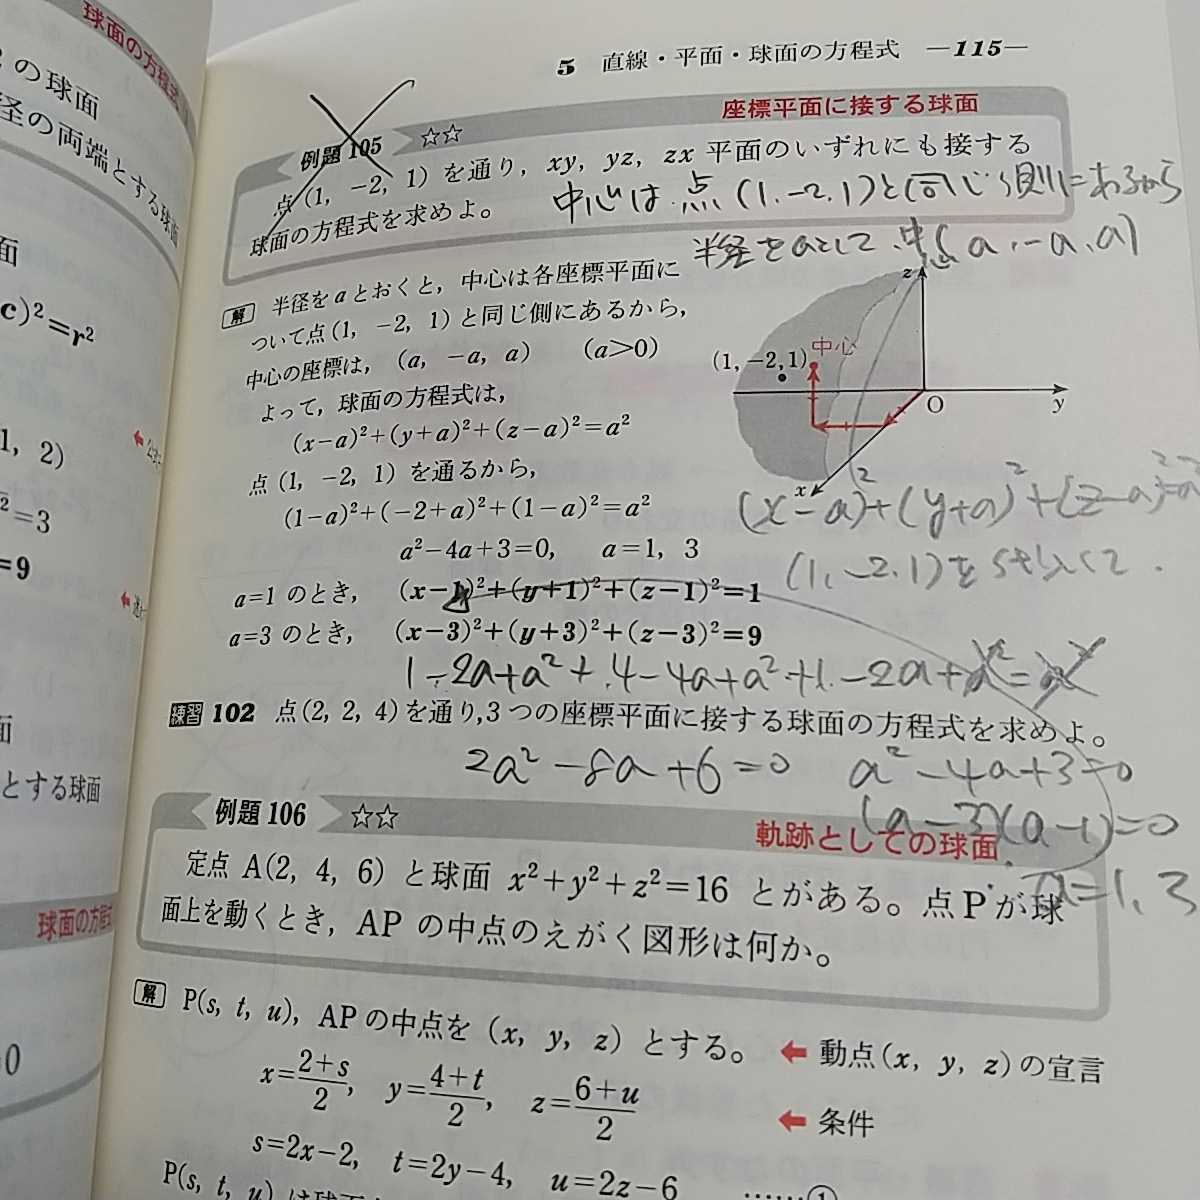 球面の方程式
の球面
径の両端とする球面
面
c)²=r²
1, 2)
²=3
=9
面
とする球面
球面の方程式
0
5 直線・平面・球面の方程式 —115—
例題 105 ☆☆ 座標平面に接する球面
点(1, −2, 1) を通り, xy, yz, zx 平面のいずれにも接する
球面の方程式を求めよ。
中心は 点 (1,-2,1)と同じ側にあるから
半径をaとして、中心(a,-a,a)
解 半径を a とおくと, 中心は各座標平面に
ついて点(1, −2, 1) と同じ側にあるから,
中心の座標は, (a, −a, a) (a>0)
よって, 球面の方程式は,
(x−a)²+(y+a)²+(z−a)²=a²
点 (1, −2, 1) を通るから,
(1−a)²+(−2+a)²+(1−a)²=a²
a²−4a+3=0, a=1, 3
a=1 のとき, (x−1)²+(y+1)²+(z−1)²=1
a=3 のとき, (x−3)²+(y+3)²+(z−3)²=9
z
(1, −2, 1) 中心
O
y
x
(x-a)²+(y+a)²+(z-a)²=a²
(1,-2,1)を
1-2a+a²+4-4a+a²+1-2a+a²=a²
練習 102 点(2, 2, 4) を通り, 3 つの座標平面に接する球面の方程式を求めよ。
2a²-8a+6=0 a²-4a+3=0
(a-3)(a-1)=0
a=1,3
例題 106 ☆☆ 軌跡としての球面
定点 A(2, 4, 6) と球面 x²+y²+z²=16 とがある。点 P が球
面上を動くとき, AP の中点のえがく図形は何か。
解 P(s, t, u), AP の中点を (x, y, z) とする。 ← 動点(x, y, z) の宣言
x=(2+s)/2, y=(4+t)/2, z=(6+u)/2 ← 条件
s=2x−2, t=2y−4, u=2z−6 ……①
P(s, t, u) は球面